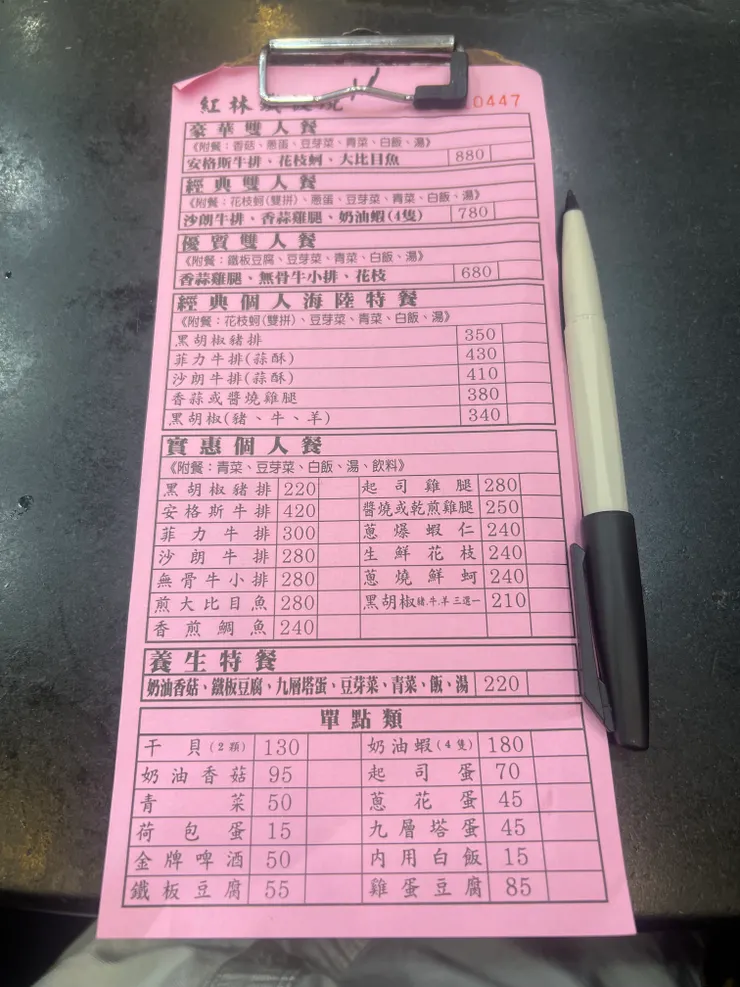 紅林鐵板燒 0447
豪華雙人餐
《附餐：香菇、蔥蛋、豆芽菜、青菜、白飯、湯》
安格斯牛排、花枝蚵、大比目魚 880
經典雙人餐
《附餐：花枝蚵(雙拼)、蔥蛋、豆芽菜、青菜、白飯、湯》
沙朗牛排、香蒜雞腿、奶油蝦(4隻) 780
優質雙人餐
《附餐：鐵板豆腐、豆芽菜、青菜、白飯、湯》
香蒜雞腿、無骨牛小排、花枝 680
經典個人海陸特餐
《附餐：花枝蚵(雙拼)、豆芽菜、青菜、白飯、湯》
黑胡椒豬排 350
菲力牛排(蒜酥) 430
沙朗牛排(蒜酥) 410
香蒜或醬燒雞腿 380
黑胡椒(豬、牛、羊) 340
實惠個人餐
《附餐：青菜、豆芽菜、白飯、湯、飲料》
黑胡椒豬排 220 起司雞腿 280
安格斯牛排 420 醬燒或乾煎雞腿 250
菲力牛排 300 蔥爆蝦仁 240
沙朗牛排 280 生鮮花枝 240
無骨牛小排 280 蔥燒鮮蚵 240
煎大比目魚 280 黑胡椒豬.牛.羊三選一 210
香煎鯛魚 240
養生特餐
奶油香菇、鐵板豆腐、九層塔蛋、豆芽菜、青菜、飯、湯 220
單點類
干貝(2顆) 130 奶油蝦(4隻) 180
奶油香菇 95 起司蛋 70
青菜 50 蔥花蛋 45
荷包蛋 15 九層塔蛋 45
金牌啤酒 50 內用白飯 15
鐵板豆腐 55 雞蛋豆腐 85